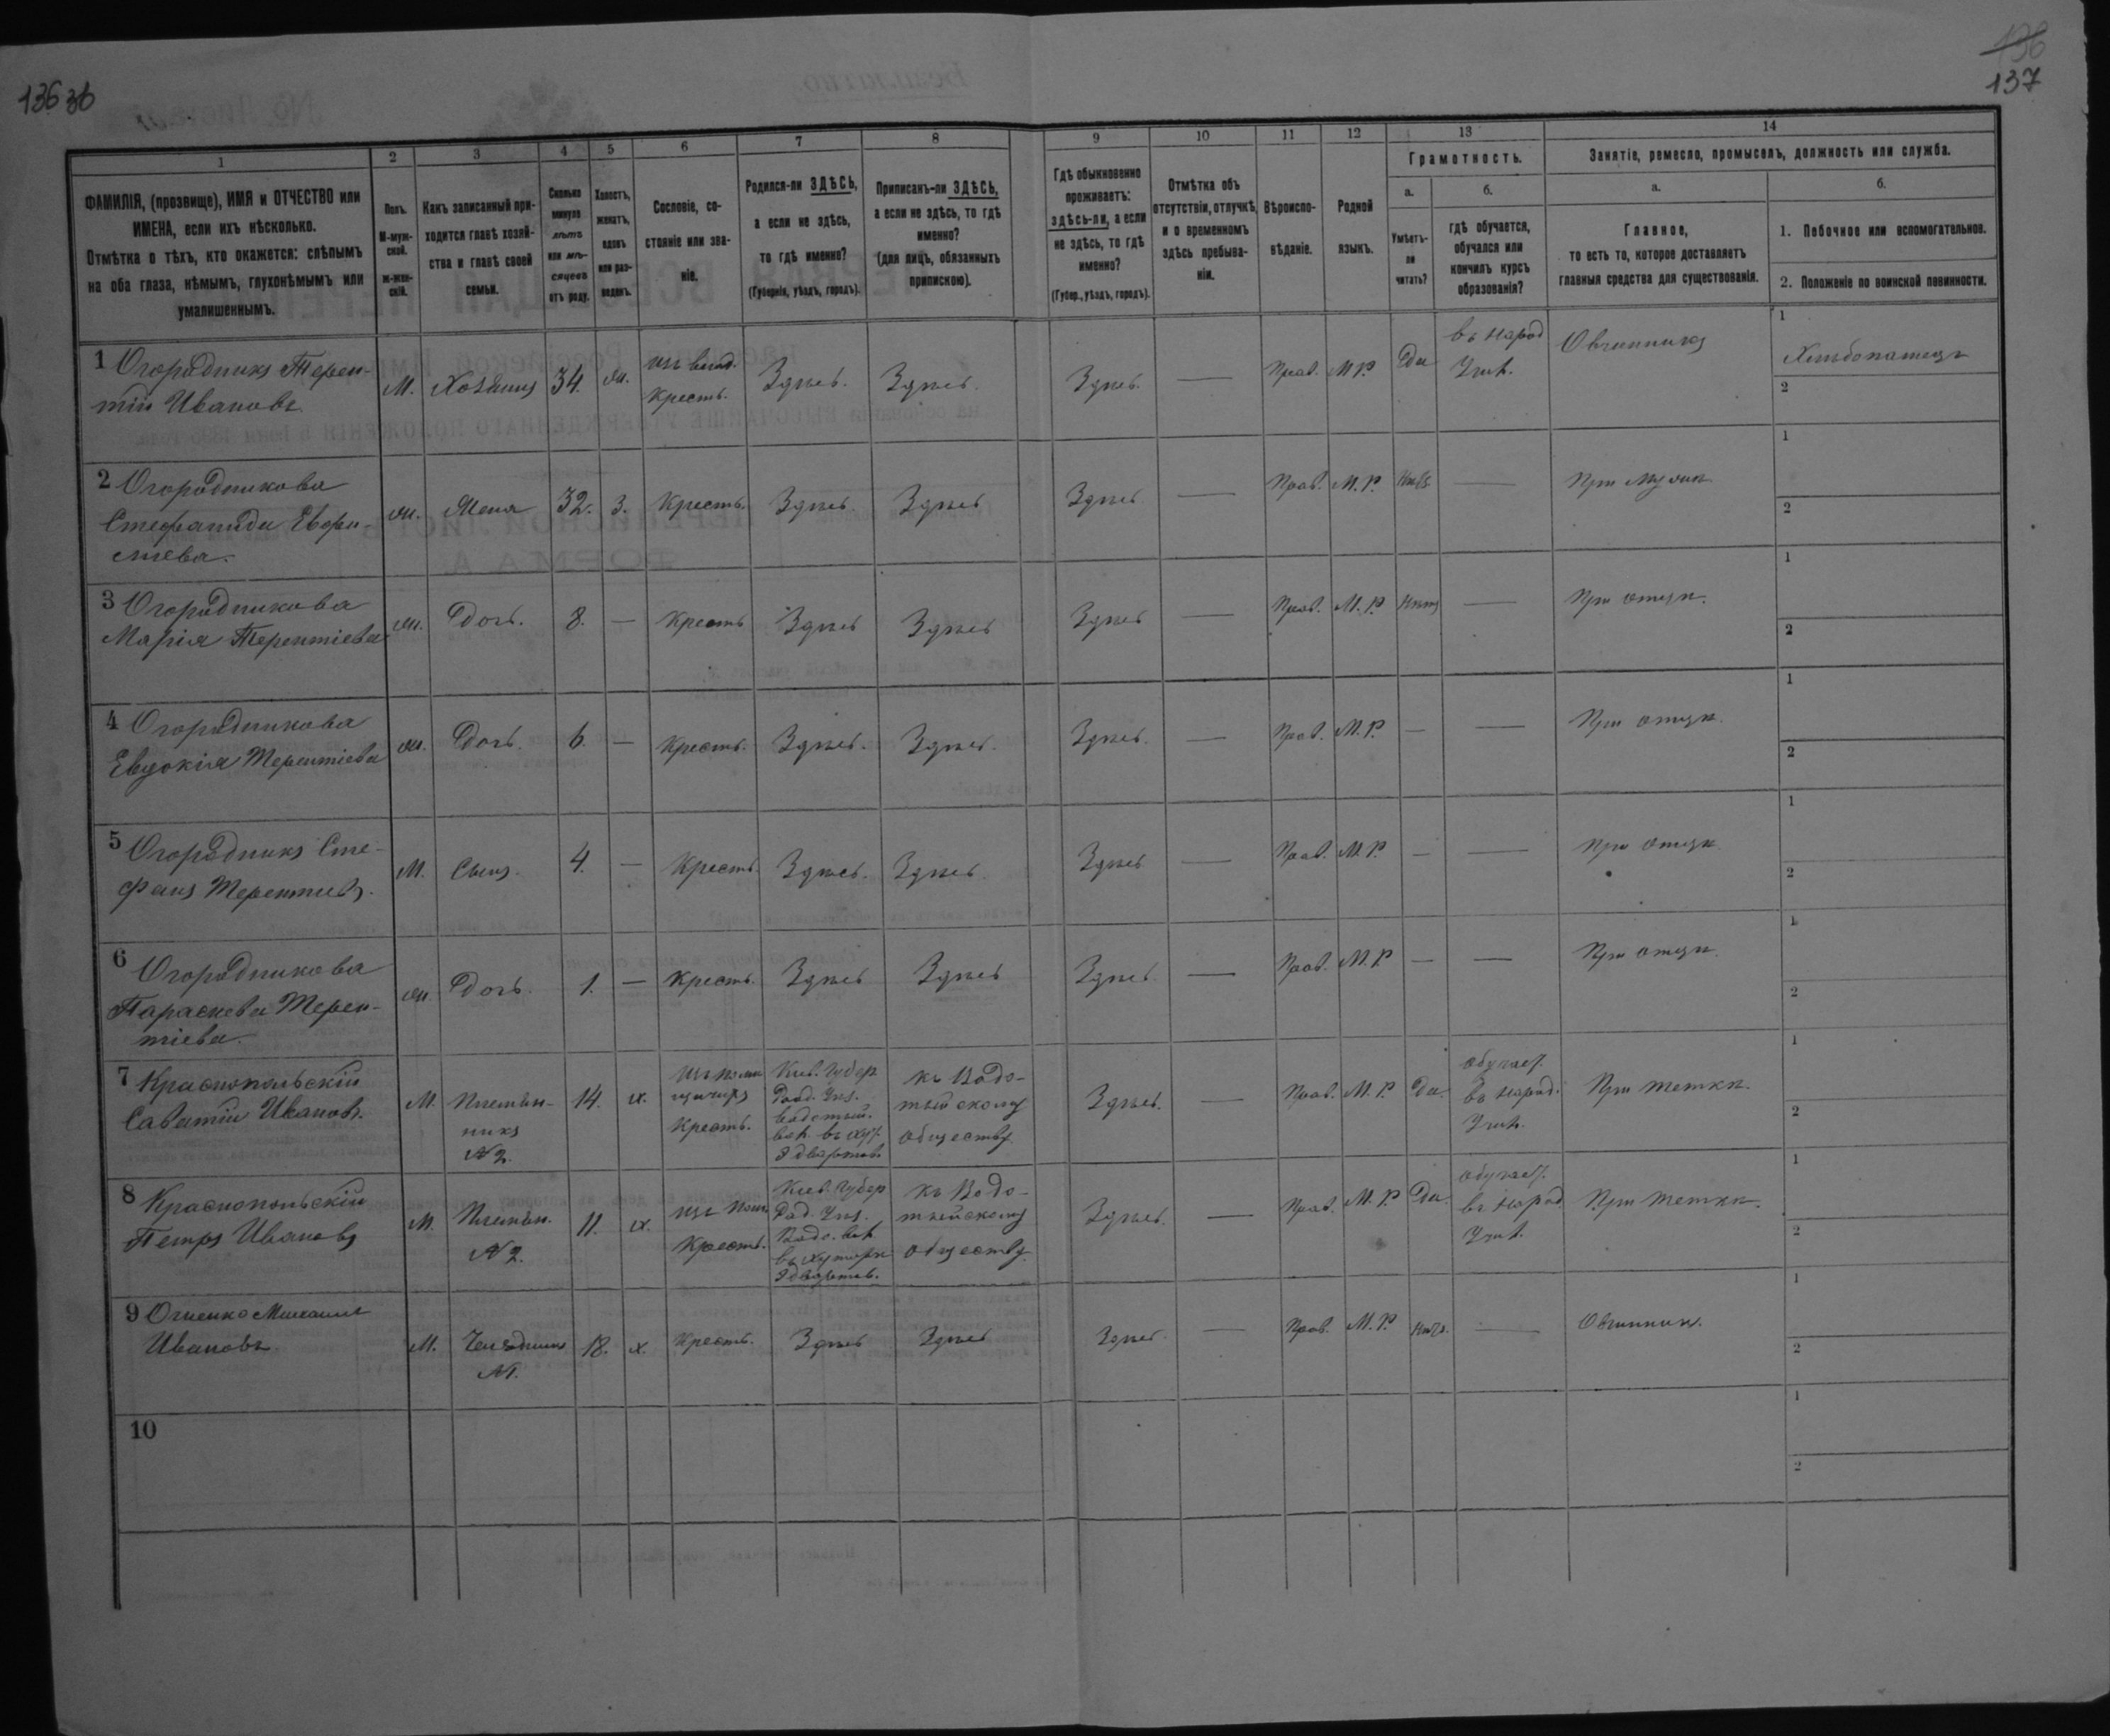 136 об
136
137
1 2 3 4 5 6 7 8 9 10 11 12 13 14
ФАМИЛІЯ, (прозвище), ИМЯ и ОТЧЕСТВО или
ИМЕНА, если ихъ нѣсколько.
Отмѣтка о тѣхъ, кто окажется: слѣпымъ
на оба глаза, нѣмымъ, глухонѣмымъ или
умалишеннымъ.
Полъ.
М-муж-
ской.
ж-жен-
скій.
Какъ записанный при-
ходится главѣ хозяй-
ства и главѣ своей
семьи.
Сколько
минуло
лѣтъ
или мѣ-
сяцевъ
отъ роду.
Холостъ,
женатъ,
вдовъ
или раз-
веденъ.
Сословіе, со-
стояніе или зва-
ніе.
Родился-ли ЗДѢСЬ,
а если не здѣсь,
то гдѣ именно?
(Губернія, уѣздъ, городъ).
Приписанъ-ли ЗДѢСЬ,
а если не здѣсь, то гдѣ
именно?
(для лицъ, обязанныхъ
припискою).
Гдѣ обыкновенно
проживаетъ:
здѣсь-ли, а если
не здѣсь, то гдѣ
именно?
(Губер., уѣздъ, городъ).
Отмѣтка объ
отсутствіи, отлучкѣ,
и о временномъ
здѣсь пребыва-
ніи.
Вѣроиспо-
вѣданіе.
Родной
языкъ.
Грамотность.
а.
Умѣетъ-
ли
читать?
б.
гдѣ обучается,
обучался или
кончилъ курсъ
образованія?
Занятіе, ремесло, промыселъ, должность или служба.
а.
Главное,
то есть то, которое доставляетъ
главныя средства для существованія.
б.
1. Побочное или вспомогательное.
2. Положеніе по воинской повинности.
1 Огородникъ Терен-
тій Ивановъ.
М. Хозяинъ 34. ж.
изъ
Крестъ.
Здѣсь. Здѣсь. Здѣсь. — Прав. М.Р. Да
въ народ
Учил.
Овчинникъ
1
Хлѣбопашецъ
2
2 Огородникова
Стефанида Евфи-
міева.
ж. Жена 32. З. Крестъ. Здѣсь Здѣсь Здѣсь — Прав. М.Р. Нѣтъ — При мужѣ
1
2
3 Огородникова
Марія Терентіева
ж. Дочь. 8. — Крестъ Здѣсь Здѣсь Здѣсь — Прав. М.Р. Нѣтъ — При отцѣ.
1
2
4 Огородникова
Евдокія Терентіева
ж. Дочь. 6. — Крестъ. Здѣсь. Здѣсь. Здѣсь. — Прав. М.Р. — — При отцѣ.
1
2
5 Огородникъ Сте-
фанъ Терентіевъ.
М. Сынъ. 4. — Крестъ. Здѣсь. Здѣсь. Здѣсь — Прав. М.Р. — — При отцѣ
1
2
6 Огородникова
Параскева Терен-
тіева.
ж. Дочь. 1. — Крестъ. Здѣсь Здѣсь Здѣсь — Прав. М.Р — — При отцѣ.
1
2
7 Краснопольскій
Саватій Ивановъ.
М. Племян-
никъ
№2.
14. х.
Крестъ.
Кіев. Губер
Рад. Уѣз.
къ Водо-
тыйскому
обществу
Здѣсь. — Прав. М.Р Да.
обучает.
въ народ.
Учил.
При теткѣ.
1
2
8 Краснопольскій
Петръ Ивановъ
М. Племян.
№2.
11. х.
изъ Пом.
Крестъ.
Кіев. Губер
Рад. Уѣз.
Водо. вол
въ хуторѣ
къ Водо-
тыйскому
обществу.
Здѣсь. — Прав. М.Р Да.
обучает.
въ народ
Учил.
При теткѣ.
1
2
9 Огненко Михаилъ
Ивановъ
М. Челядникъ
№1.
18. х. Крестъ. Здѣсь Здѣсь Здѣсь — Прав. М.Р. Нѣтъ. — Овчинник.
1
2
10
1
2